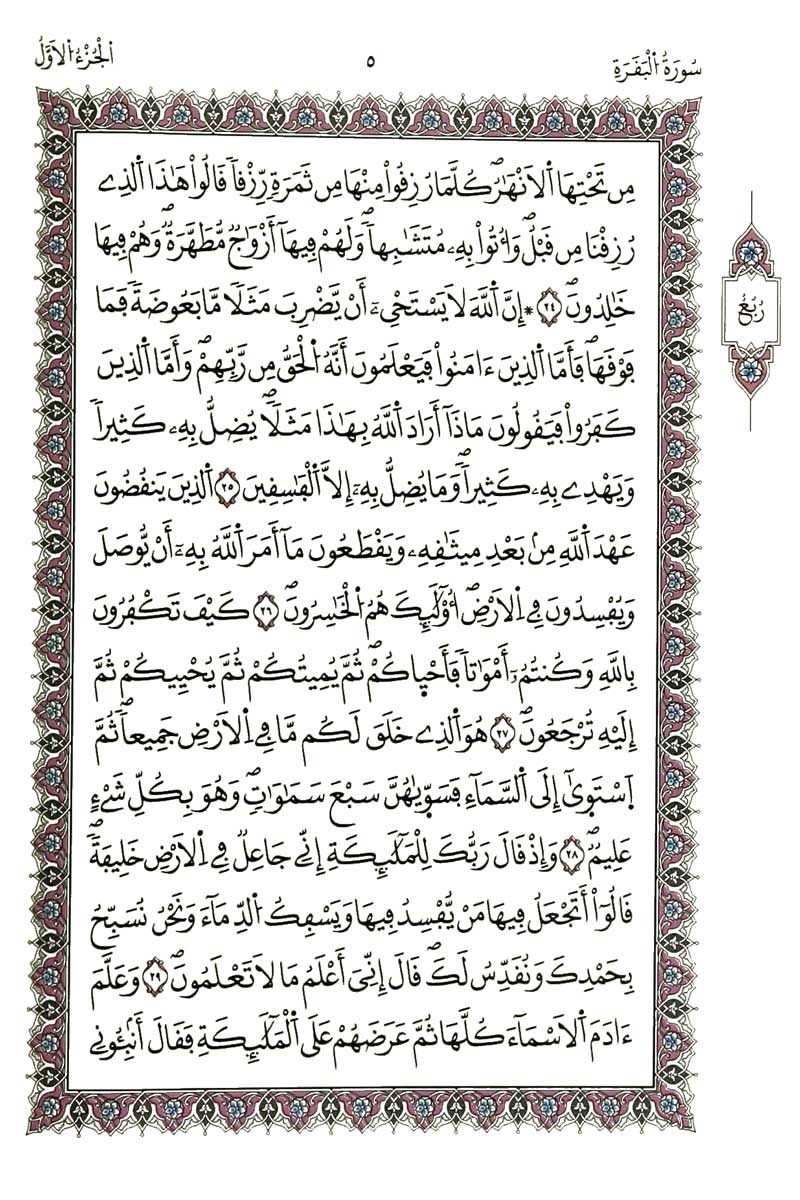 سُورَةُ اُ۬لْبَقَرَةِ
٥
اَ۬لْجُزْءُ اُ۬لَاوَّلُ
مِن تَحْتِهَا اَ۬لَانْهَٰرُۖ كُلَّمَا رُزِقُواْ مِنْهَا مِن ثَمَرَةٖ رِّزْقاٗ قَالُواْ هَٰذَا اَ۬لذِے
رُزِقْنَا مِن قَبْلُۖ وَأُتُواْ بِهِۦ مُتَشَٰبِهاٗۖ وَلَهُمْ فِيهَآ أَزْوَٰجٞ مُّطَهَّرَةٞۖ وَهُمْ فِيهَا
خَٰلِدُونَۖ ٢٤ *إِنَّ اَ۬للَّهَ لَا يَسْتَحْيِۦٓ أَنْ يَّضْرِبَ مَثَلاٗ مَّا بَعُوضَةٗ فَمَا
فَوْقَهَاۖ فَأَمَّا اَ۬لذِينَ ءَامَنُواْ فَيَعْلَمُونَ أَنَّهُ اُ۬لْحَقُّ مِن رَّبِّهِمْۖ وَأَمَّا اَ۬لذِينَ
كَفَرُواْ فَيَقُولُونَ مَاذَآ أَرَادَ اَ۬للَّهُ بِهَٰذَا مَثَلاٗۖ يُضِلُّ بِهِۦ كَثِيراٗ
وَيَهْدِے بِهِۦ كَثِيراٗۖ وَمَا يُضِلُّ بِهِۦٓ إِلَّا اَ۬لْفَٰسِقِينَ ٢٥ اَ۬لذِينَ يَنقُضُونَ
عَهْدَ اَ۬للَّهِ مِنۢ بَعْدِ مِيثَٰقِهِۦ وَيَقْطَعُونَ مَآ أَمَرَ اَ۬للَّهُ بِهِۦٓ أَنْ يُّوصَلَ
وَيُفْسِدُونَ فِے اِ۬لَارْضِۖ أُوْلَٰٓئِكَ هُمُ اُ۬لْخَٰسِرُونَۖ ٢٦ كَيْفَ تَكْفُرُونَ
بِاللَّهِ وَكُنتُمُۥٓ أَمْوَٰتاٗ فَأَحْيٰ۪كُمْۖ ثُمَّ يُمِيتُكُمْ ثُمَّ يُحْيِيكُمْ ثُمَّ
إِلَيْهِ تُرْجَعُونَۖ ٢٧ هُوَ اَ۬لذِے خَلَقَ لَكُم مَّا فِے اِ۬لَارْضِ جَمِيعاٗۖ ثُمَّ
اَ۪سْتَوَىٰٓ إِلَى اَ۬لسَّمَآءِ فَسَوّ۪يٰهُنَّ سَبْعَ سَمَٰوَٰتٖۖ وَهُوَ بِكُلِّ شَےْءٍ
عَلِيمٞۖ ٢٨ وَإِذْ قَالَ رَبُّكَ لِلْمَلَٰٓئِكَةِ إِنِّے جَاعِلٞ فِے اِ۬لَارْضِ خَلِيفَةٗۖ
قَالُوٓاْ أَتَجْعَلُ فِيهَا مَنْ يُّفْسِدُ فِيهَا وَيَسْفِكُ اُ۬لدِّمَآءَ وَنَحْنُ نُسَبِّحُ
بِحَمْدِكَ وَنُقَدِّسُ لَكَۖ قَالَ إِنِّيَ أَعْلَمُ مَا لَا تَعْلَمُونَۖ ٢٩ وَعَلَّمَ
ءَادَمَ اَ۬لَاسْمَآءَ كُلَّهَا ثُمَّ عَرَضَهُمْ عَلَى اَ۬لْمَلَٰٓئِكَةِ فَقَالَ أَنۢبِـُٔونِے
رُبُعُ